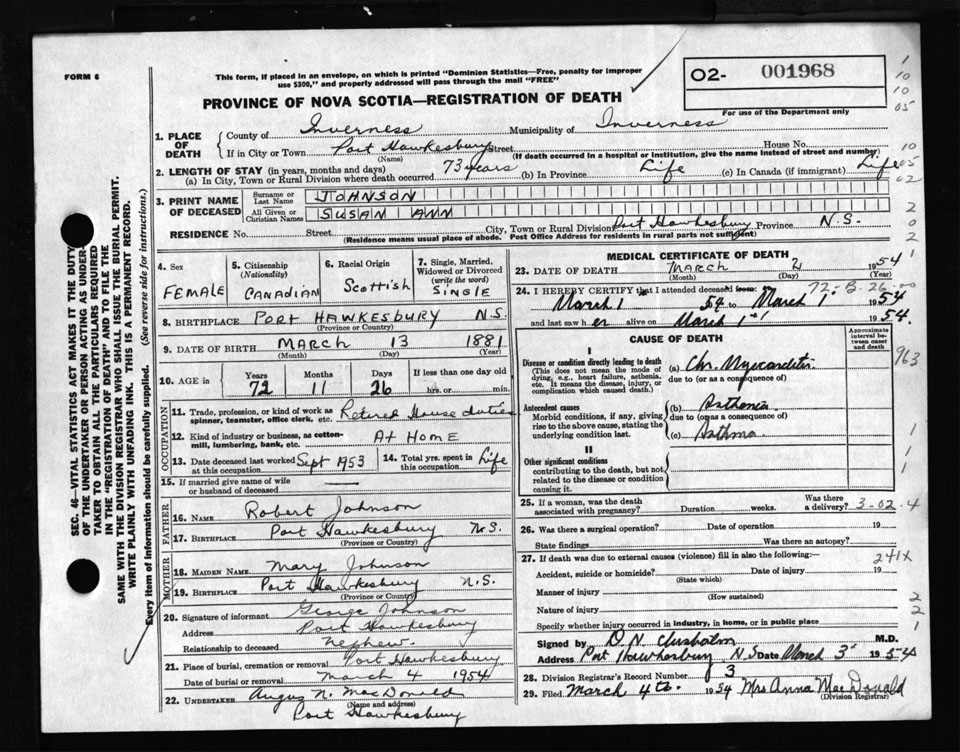 FORM 6
This form, if placed in an envelope, on which is printed "Dominion Statistics—Free, penalty for improper
use $300," and properly addressed will pass through the mail "FREE"
O2- 001968
For use of the Department only
PROVINCE OF NOVA SCOTIA—REGISTRATION OF DEATH
1
10
10
05
10
05
02
2
0
2
1
1. PLACE OF DEATH
County of Inverness Municipality of Inverness
If in City or Town Port Hawkesbury Street House No.
(Name) (If death occurred in a hospital or institution, give the name instead of street and number)
2. LENGTH OF STAY (in years, months and days)
(a) In City, Town or Rural Division where death occurred 73 years (b) In Province Life (c) In Canada (if immigrant) Life
3. PRINT NAME OF DECEASED
Surname or Last Name JOHNSON
All Given or Christian Names SUSAN ANN
RESIDENCE No. Street City, Town or Rural Division Port Hawkesbury Province N.S.
(Residence means usual place of abode. Post Office Address for residents in rural parts not sufficient)
4. Sex
FEMALE
5. Citizenship
(Nationality)
CANADIAN
6. Racial Origin
Scottish
7. Single, Married,
Widowed or Divorced
(write the word)
SINGLE
8. BIRTHPLACE PORT HAWKESBURY N.S.
(Province or Country)
9. DATE OF BIRTH MARCH 13 1881
(Month) (Day) (Year)
10. AGE in
Years Months Days If less than one day old
72 11 26 hrs. or min.
OCCUPATION
11. Trade, profession, or kind of work as
spinner, teamster, office clerk. etc. Retired House duties
12. Kind of industry or business, as cotton-
mill, lumbering, bank, etc. At HOME
13. Date deceased last worked
at this occupation Sept 1953
14. Total yrs. spent in
this occupation Life
15. If married give name of wife
or husband of deceased —
FATHER
16. NAME Robert Johnson
17. BIRTHPLACE Port Hawkesbury N.S.
(Province or Country)
MOTHER
18. MAIDEN NAME Mary Johnson
19. BIRTHPLACE Port Hawkesbury N.S.
(Province or Country)
20. Signature of informant George Johnson
Address Port Hawkesbury
Relationship to deceased nephew.
21. Place of burial, cremation or removal Port Hawkesbury
Date of burial or removal March 4 1954
22. UNDERTAKER Angus N. MacDonald
(Name and address)
Port Hawkesbury
MEDICAL CERTIFICATE OF DEATH
23. DATE OF DEATH MARCH 2 1954
(Month) (Day)
72-B-26-00
24. I HEREBY CERTIFY that I attended deceased from:
March 1 54 to March 1 1954
and last saw h er alive on March 1st 1954.
CAUSE OF DEATH
Approximate
interval be-
tween onset
and death
I
Disease or condition directly leading to death
(This does not mean the mode of
dying, e.g., heart failure, asthenia,
etc. It means the disease, injury, or
complication which caused death.)
(a) Chr. Myocarditis
due to (or as a consequence of)
963
Antecedent causes
Morbid conditions, if any, giving
rise to the above cause, stating the
underlying condition last.
(b) Asthenia
due to (or as a consequence of)
(c) Asthma
1
1
1
II
Other significant conditions
contributing to the death, but not
related to the disease or condition
causing it.
25. If a woman, was the death
associated with pregnancy? Duration weeks. Was there
a delivery? 3-02.4
26. Was there a surgical operation? Date of operation 19
State findings Was there an autopsy?
27. If death was due to external causes (violence) fill in also the following:— 241X
Accident, suicide or homicide? Date of injury 19
(State which)
Manner of injury
(How sustained)
Nature of injury
Specify whether injury occurred in industry, in home, or in public place
2
2
1
Signed by D. N. Chisholm M.D.
Address Port Hawkesbury N.S Date March 3rd 1954
28. Division Registrar's Record Number 3
29. Filed March 4th. 1954 Mrs Anna MacDonald
(Division Registrar)
SEC. 46—VITAL STATISTICS ACT MAKES IT THE DUTY
OF THE UNDERTAKER OR PERSON ACTING AS UNDER-
TAKER TO OBTAIN ALL THE PARTICULARS REQUIRED
IN THE "REGISTRATION OF DEATH" AND TO FILE THE
SAME WITH THE DIVISION REGISTRAR WHO SHALL ISSUE THE BURIAL PERMIT.
WRITE PLAINLY WITH UNFADING INK. THIS IS A PERMANENT RECORD.
Every item of information should be carefully supplied. (See reverse side for instructions.)